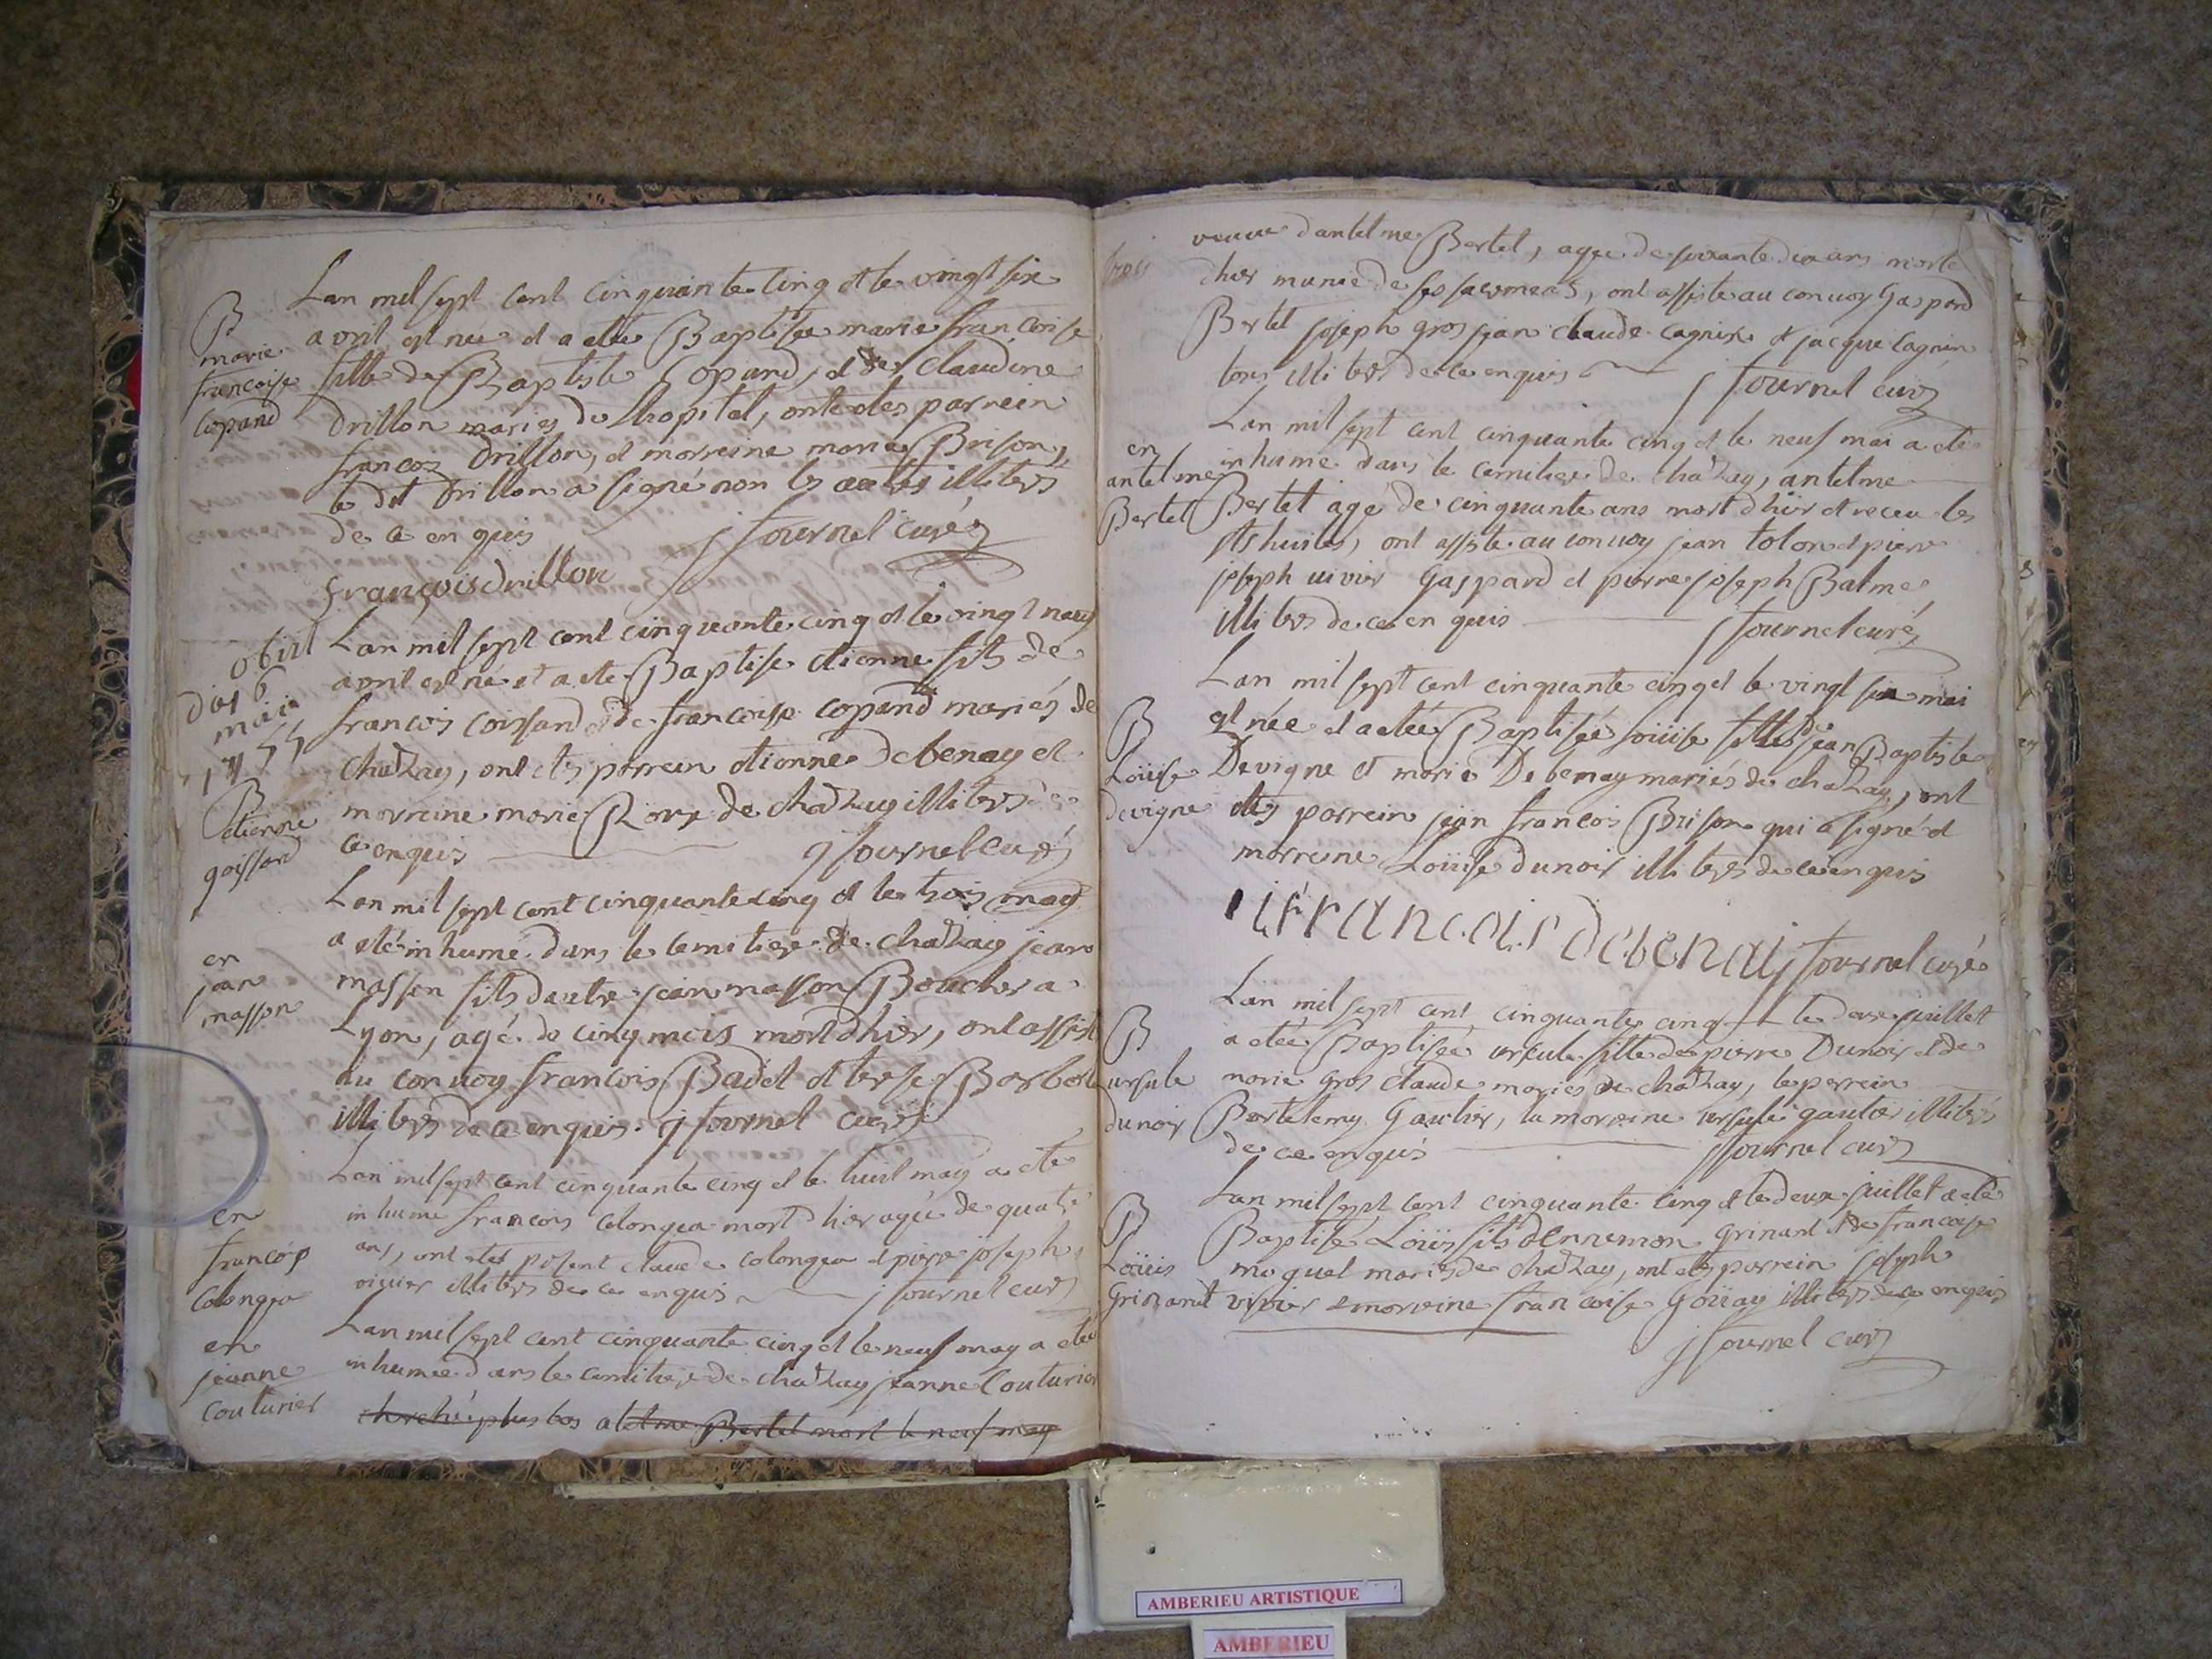 Lan mil sept cent cinquante cinq et le vingt six
B
marie
francoise
Copand
avril est nee et a etée Baptisée marie francoise
fille de Baptiste Copand, et de Claudine
Drillon mariés de lhopital, ont etes parrein
francois Drillon, et marreine marie Brison,
le dit Drillon a signé non les autres illiterés
de ce enquis j fournel curé
françois drillon
obiit
dies 6
maii
1755
Lan mil sept cent cinquante cinq et le vingt neuf
avril est né et a ete Baptise etienne fils de
francois coissard et de francoise copand mariés de
chazay, ont etes parrein etienne debenay et
B
etienne
goissard
marreine marie Roux de chazay illiterés de
ce enquis j fournel curé
Lan mil sept cent cinquante cinq et le trois may
en
jean
masson
a eté inhumé dans le cemitiere de chazay jean
masson fils dautre jean masson Boucher a
Lyon, agé de cinq mois mort dhier, ont assisté
au convoy francois Badet et terese Borbet
illiterés de ce enquis. j fournel curé
Lan mil sept cent cinquante cinq et le huit may a ete
en
francois
Colongea
inhume francois colongea mort hier agé de quatre
ans, ont etes present claude colongea et pierre joseph
vivier illiterés de ce enquis j fournel curé
en
jeanne
couturier
Lan mil sept cent cinquante cinq et le neuf may a eté
inhumée dans le cemitiere de chazay jeanne Couturier
cherché plus bas atelme Bertet mort le neuf may
veuve dantelme Bertet, agee de soixante dix ans morte
dhier munie de ses sacremens, ont assiste au convoy Gaspard
Bertet joseph gros jean claude cagnin et jacque cagnin
tous illiterés de ce enquis j fournel curé
Lan mil sept cent cinquante cinq et le neuf mai a ete
en
antelme
Bertet
inhume dans le cemitiere de chazay, antelme
Bertet agé de cinquante ans mort dhier et receu les
sts huiles, ont assiste au convoy jean tolon et pierre
joseph vivier Gaspard et pierre joseph Balme
illiterés de ce enquis j fournel curé
Lan mil sept cent cinquante cinq et le vingt six mai
B
Loüise
devigne
est née et a etée Baptisée Loüise fille de jean Baptiste
Devigne et marie Debenay mariés de chazay, ont
etes parrein jean francois Brison qui a signé et
marreine Loüise dunoir illiterés de ce enquis
i francois debenay j fournel curé
Lan mil sept cent cinquante cinq et le deux juillet
B
ursule
dunoir
a etée Baptisée ursule fille de pierre Dunoir et de
marie gros claude mariés de chazay, le parrein
Bertelemy Gautier, la marreine ursule gautier illiterés
de ce enquis j fournel curé
Lan mil sept cent cinquante cinq et le deux juillet a ete
B
Loüis
Grinand
Baptisé Loüis fils dEnnemon grinand et de francoise
moquet mariés de chazay, ont etes parrein joseph
vivier et marreine francoise Goüay illiterés de ce enquis
j fournel curé
AMBERIEU ARTISTIQUE
AMBERIEU